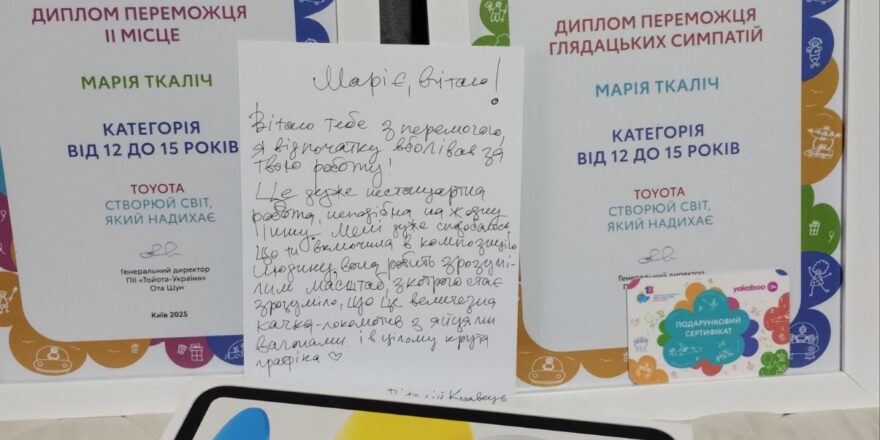 ДИПЛОМ ПЕРЕМОЖЦЯ
ІІ МІСЦЕ
МАРІЯ ТКАЛІЧ
КАТЕГОРІЯ
ВІД 12 ДО 15 РОКІВ
TOYOTA
СТВОРЮЙ СВІТ,
ЯКИЙ НАДИХАЄ
Генеральний директор
ПІІ «Тойота-Україна»
Ота Шун
Київ 2025
Маріє, вітаю!
Вітаю тебе з перемогою,
я відпочатку вболівав за
твою роботу!
Це дуже нестандартна
робота, неподібна на жодну
іншу. Мені дуже сподобалось,
що ти включила в композицію
людину, вона робить зрозумі-
лим масштаб, з котрого стає
зрозуміло, що це величезна
качка-локомотив з яйцями
вагонами. і в цілому крута
графіка ♡
ДИПЛОМ ПЕРЕМОЖЦЯ
ГЛЯДАЦЬКИХ СИМПАТІЙ
МАРІЯ ТКАЛІЧ
КАТЕГОРІЯ
ВІД 12 ДО 15 РОКІВ
TOYOTA
СТВОРЮЙ СВІТ,
ЯКИЙ НАДИХАЄ
Генеральний директор
ПІІ «Тойота-Україна»
Ота Шун
yakaboo
ПОДАРУНКОВИЙ
СЕРТИФІКАТ